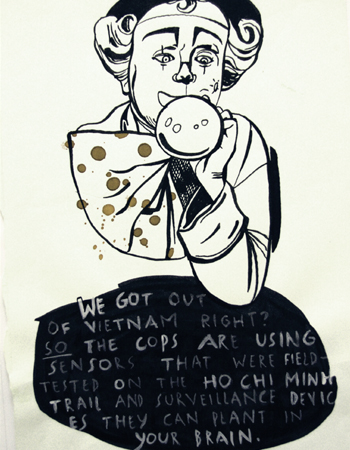 WE GOT OUT
OF VIETNAM RIGHT?
SO THE COPS ARE USING
SENSORS THAT WERE FIELD-
TESTED ON THE HO CHI MINH
TRAIL AND SURVEILLANCE DEVIC
ES THEY CAN PLANT IN
YOUR BRAIN.